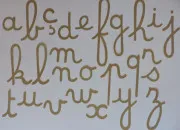 a b ç d e f g h i j
k l m n o p q r s
t u v w x y z